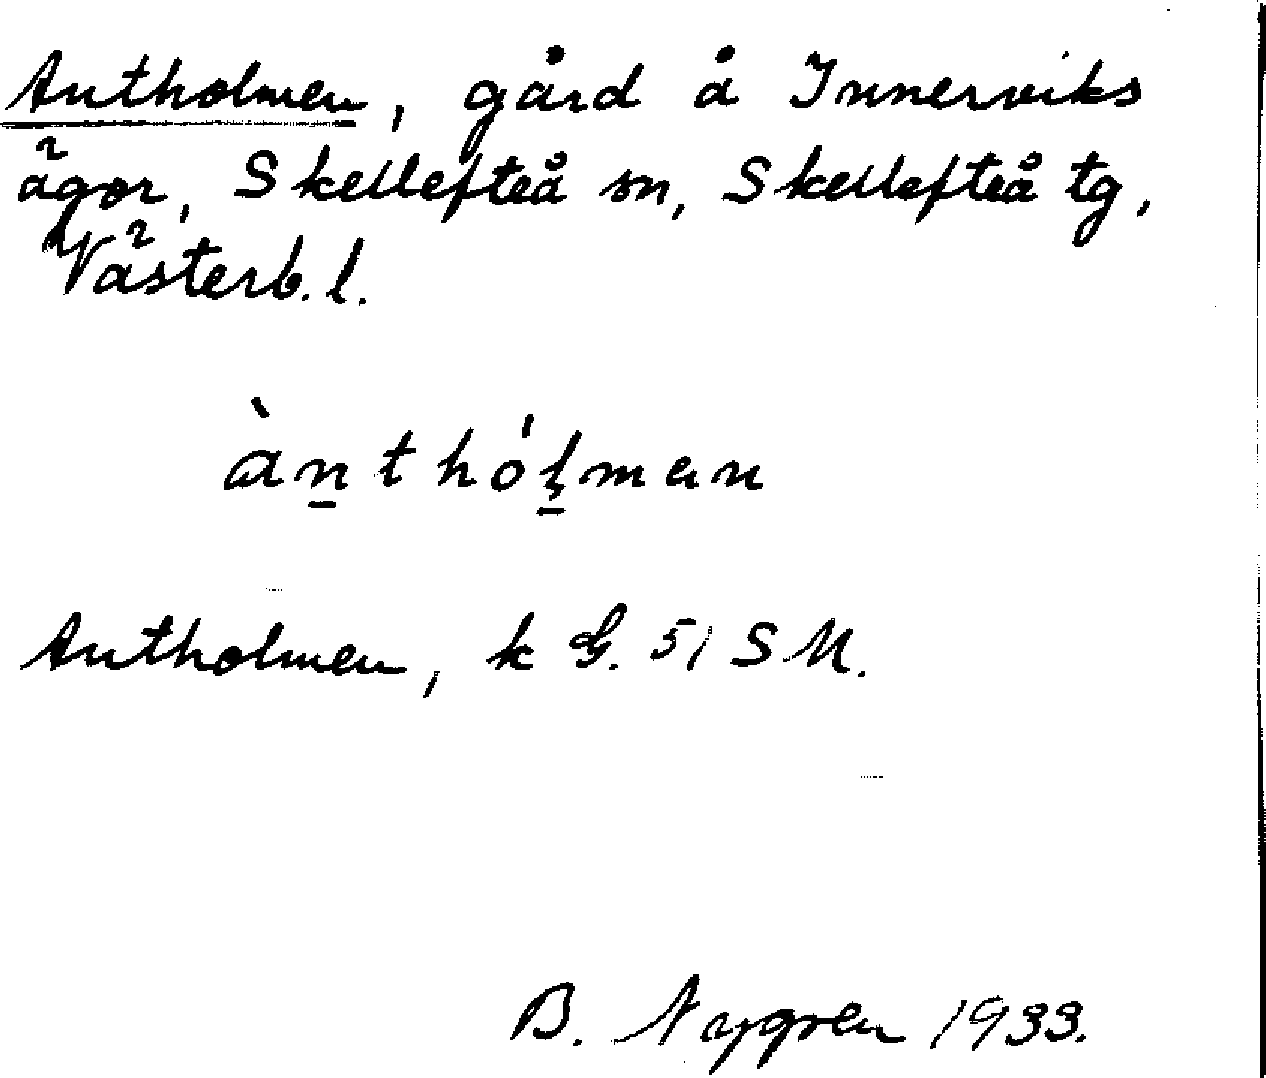 Antholmen, gård å Innerviks
ägor, Skellefteå sn, Skellefteå tg,
Västerb. l.
àn̲thóļ̲mɐn
Antholmen, k G. 51 S M.
B. Nygren 1933.